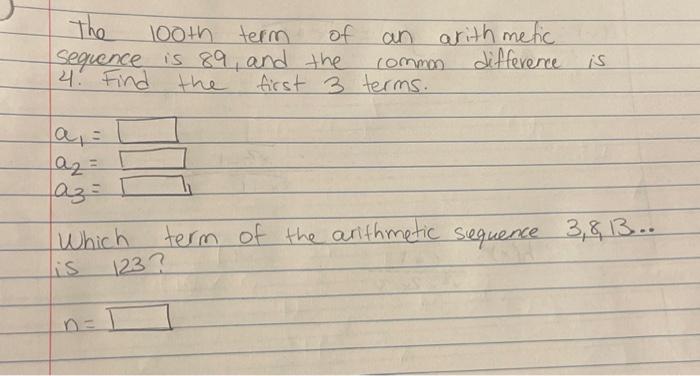 The 100th term of an arithmetic
sequence is 89, and the common difference is
4. Find the first 3 terms.
a₁ =
a₂ =
a₃ =
Which term of the arithmetic sequence 3,8,13...
is 123?
n =